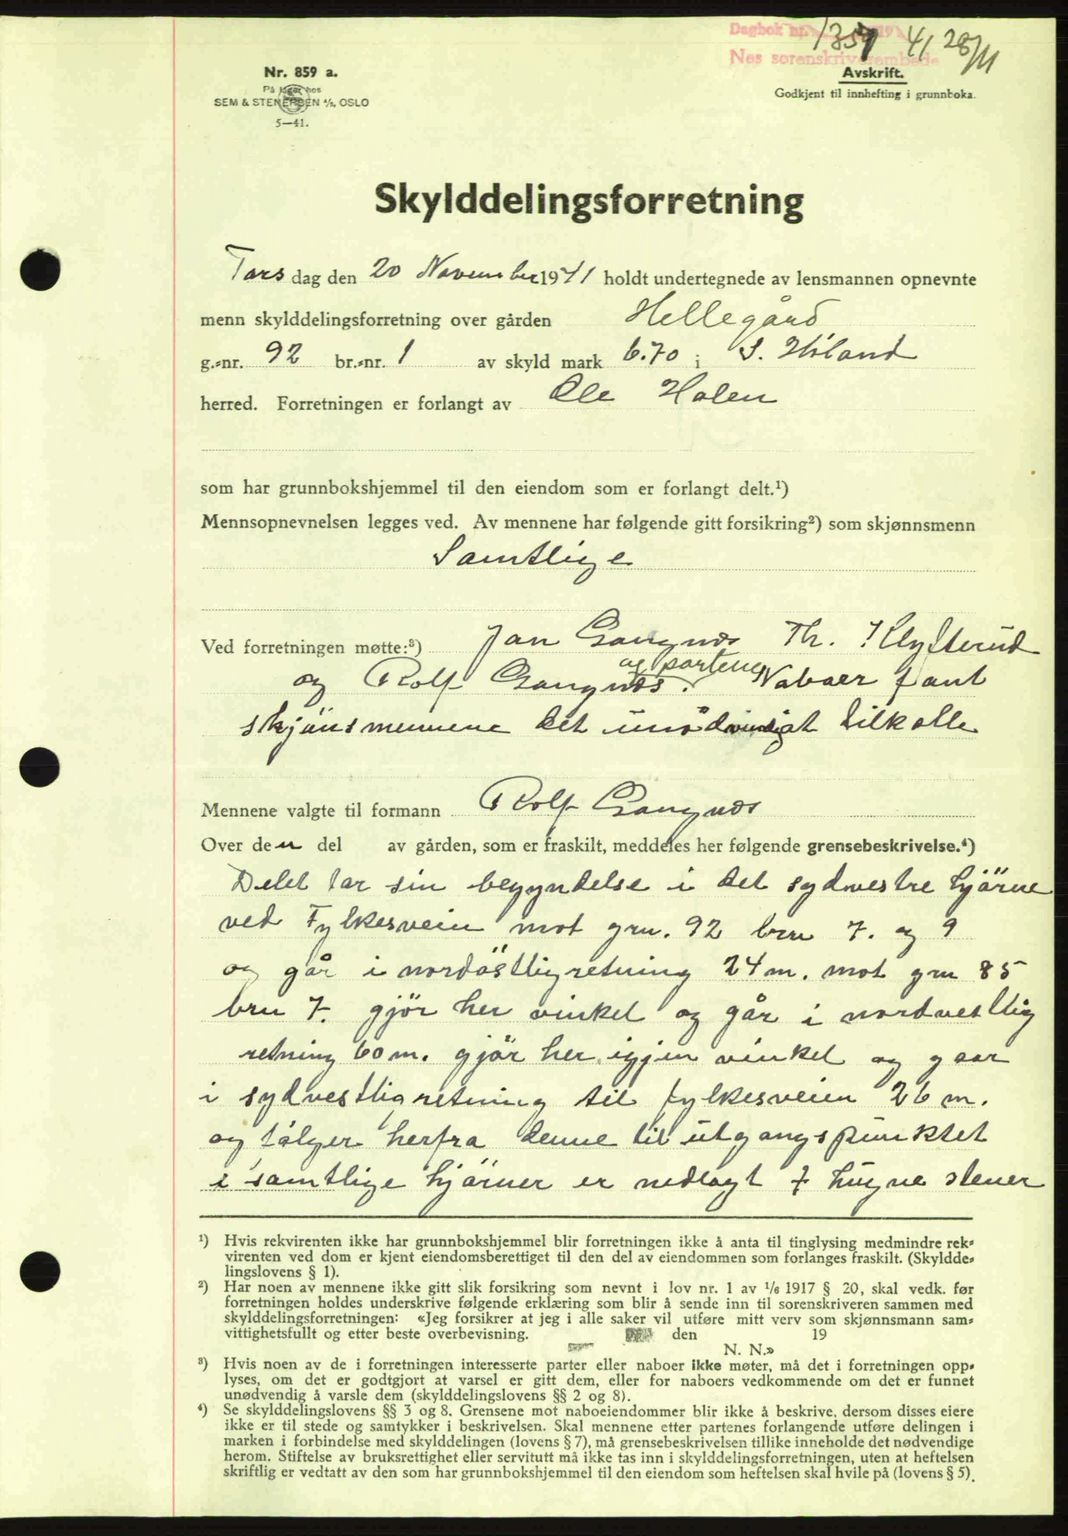 Dagbok nr. 1357 1941 28/11
Nes sorenskriverembede
Nr. 859 a.
På lager hos
SEM & STENERSEN A/S, OSLO
5—41.
Avskrift.
Godkjent til innhefting i grunnboka.
Skylddelingsforretning
Tors dag den 20 November 1941 holdt undertegnede av lensmannen opnevnte
menn skylddelingsforretning over gården Hellegård
g.-nr. 92 br.-nr. 1 av skyld mark 6.70 i S. Höland
herred. Forretningen er forlangt av Ole Holen
som har grunnbokshjemmel til den eiendom som er forlangt delt.¹)
Mennsopnevnelsen legges ved. Av mennene har følgende gitt forsikring²) som skjønnsmenn
Samtlige
Ved forretningen møtte:³) Jan Gangnæs Th. Klyfterud
og Rolf Gangnæs. og partene Naboer fant
skjönsmennene det unödvendigt tilkalle
Mennene valgte til formann Rolf Gangnæs
Over den del av gården, som er fraskilt, meddeles her følgende grensebeskrivelse.⁴)
Delet tar sin begyndelse i det sydvestre hjörne
ved Fylkesveien mot grn. 92 brn 7. og 9
og går i nordöstligretning 24 m. mot grn 85
brn 7. gjör her vinkel og går i nordvestlig
retning 60 m. gjör her igjen vinkel og gaar
i sydvestligretning til fylkesveien 26 m.
og fölger herfra denne til utgangspunktet
i samtlige hjörner er nedlagt hugne stener
¹) Hvis rekvirenten ikke har grunnbokshjemmel blir forretningen ikke å anta til tinglysing medmindre rek-
virenten ved dom er kjent eiendomsberettiget til den del av eiendommen som forlanges fraskilt. (Skyldde-
lingslovens § 1).
²) Har noen av mennene ikke gitt slik forsikring som nevnt i lov nr. 1 av 1/6 1917 § 20, skal vedk. før
forretningen holdes underskrive følgende erklæring som blir å sende inn til sorenskriveren sammen med
skylddelingsforretningen: «Jeg forsikrer at jeg i alle saker vil utføre mitt verv som skjønnsmann sam-
vittighetsfullt og etter beste overbevisning. den 19
N. N.»
³) Hvis noen av de i forretningen interesserte parter eller naboer ikke møter, må det i forretningen opp-
lyses, om det er godtgjort at varsel er gitt dem, eller for naboers vedkommende om det er funnet
unødvendig å varsle dem (skylddelingslovens §§ 2 og 8).
⁴) Se skylddelingslovens §§ 3 og 8. Grensene mot naboeiendommer blir ikke å beskrive, dersom disses eiere
ikke er til stede og samtykker i beskrivelsen. Skal mennene etter partenes forlangende utføre delingen i
marken i forbindelse med skylddelingen (lovens § 7), må grensebeskrivelsen tillike inneholde det nødvendige
herom. Stiftelse av bruksrettighet eller servitutt må ikke tas inn i skylddelingsforretningen, uten at heftelsen
skriftlig er vedtatt av den som har grunnbokshjemmel til den eiendom som heftelsen skal hvile på (lovens § 5).